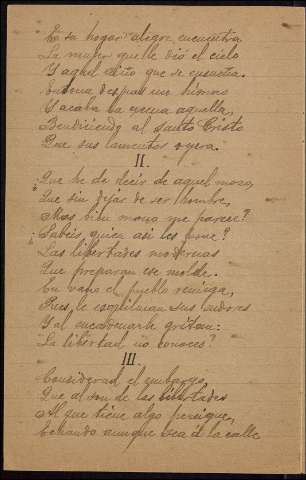 En su hogar alegre encuentra
La mujer que le dió el cielo
Y aquel niño que se
despues un himno
Y acaba la escena aquella,
Bendiciendo al Santo Cristo
Que sus lamentos oyera.
II.
¿Que he de decir de aquel mozo,
Que sin dejar de ser hombre,
Mas bien mono me parece?
¿Sabéis quien asi les pone?
Las libertades modernas
Que preparan ese molde.
En vano el pueblo reniega,
Pues le esquilman sus sudores
Y al encadenarle gritan:
La libertad no conoces?
III.
Considerad el embozo,
Que al son de las libertades
Al que tiene algo persigue,
Echando aunque sea á la calle